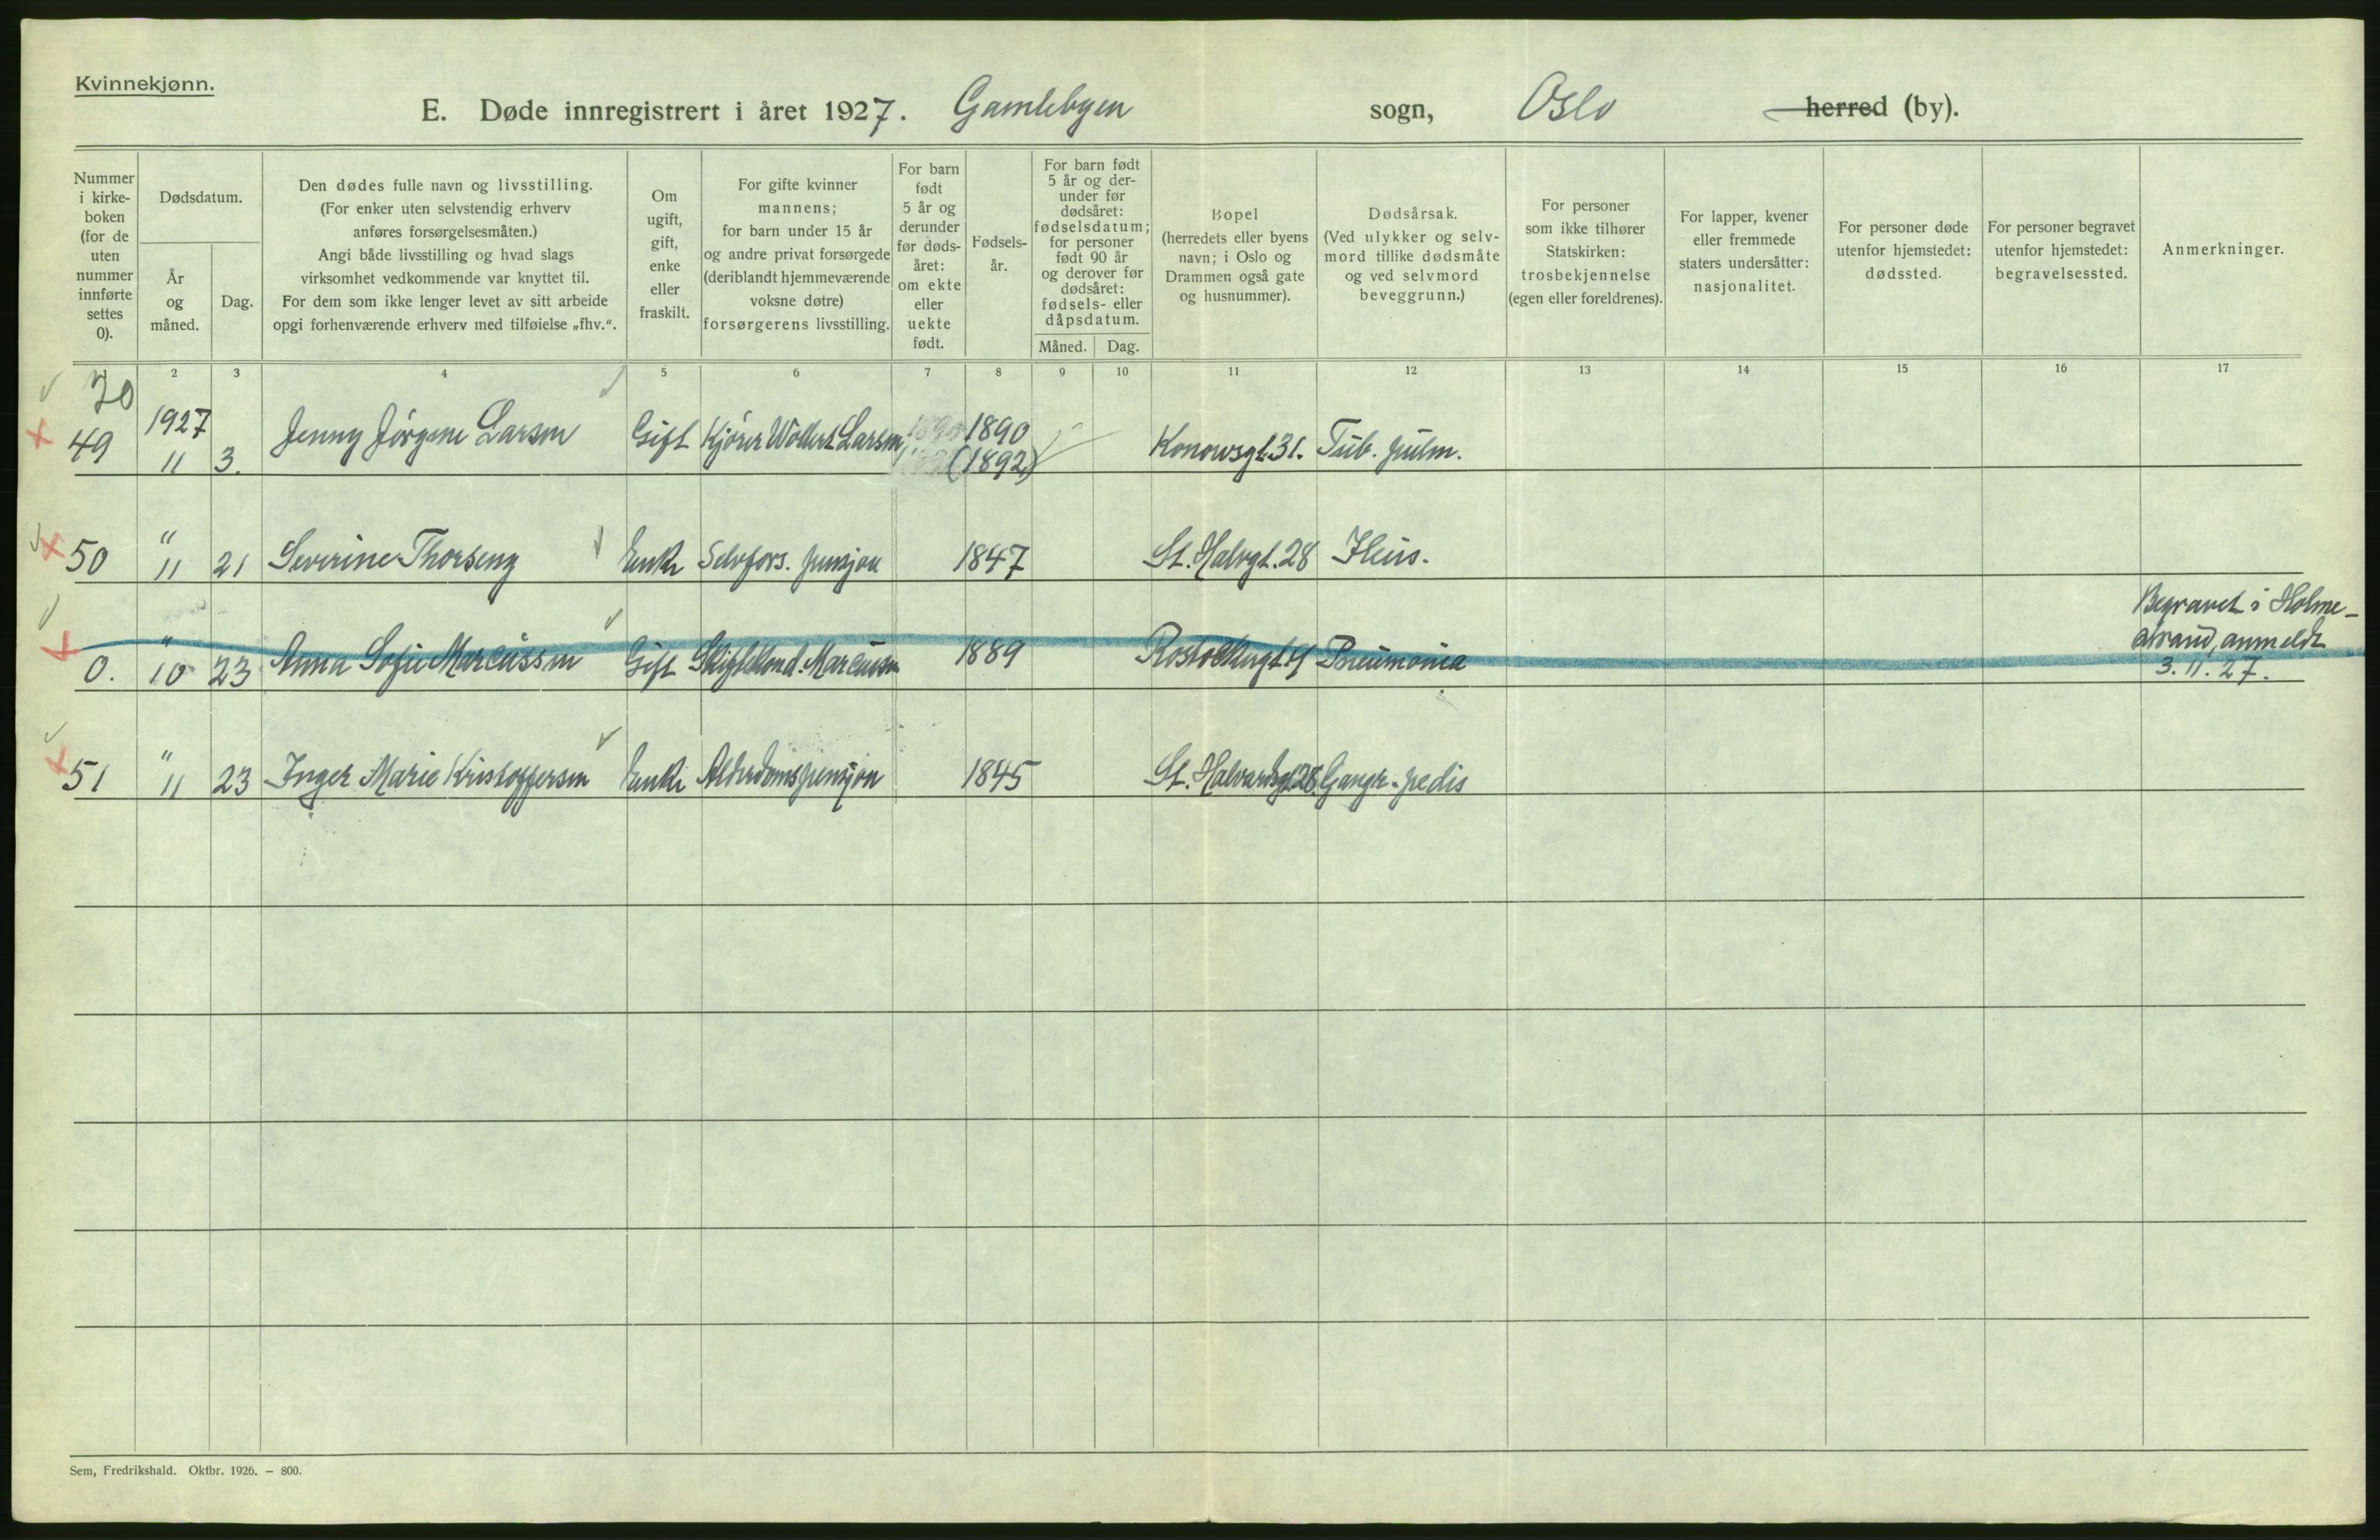 Kvinnekjønn.
E. Døde innregistrert i året 1927. Gamlebyen sogn, Oslo herred (by).
Nummer
i kirke-
boken
(for de
uten
nummer
innførte
settes
0).
Dødsdatum.
År
og
måned.
Dag.
Den dødes fulle navn og livsstilling.
(For enker uten selvstendig erhverv
anføres forsørgelsesmåten.)
Angi både livsstilling og hvad slags
virksomhet vedkommende var knyttet til.
For dem som ikke lenger levet av sitt arbeide
opgi forhenværende erhverv med tilføielse „fhv.“.
Om
ugift,
gift,
enke
eller
fraskilt.
For gifte kvinner
mannens;
for barn under 15 år
og andre privat forsørgede
(deriblandt hjemmeværende
voksne døtre)
forsørgerens livsstilling.
For barn
født
5 år og
derunder
før døds-
året:
om ekte
eller
uekte
født.
Fødsels-
år.
For barn født
5 år og der-
under før
dødsåret:
fødselsdatum;
for personer
født 90 år
og derover før
dødsåret:
fødsels- eller
dåpsdatum.
Måned. Dag.
Bopel
(herredets eller byens
navn; i Oslo og
Drammen også gate
og husnummer).
Dødsårsak.
(Ved ulykker og selv-
mord tillike dødsmåte
og ved selvmord
beveggrunn.)
For personer
som ikke tilhører
Statskirken:
trosbekjennelse
(egen eller foreldrenes).
For lapper, kvener
eller fremmede
staters undersåtter:
nasjonalitet.
For personer døde
utenfor hjemstedet:
dødssted.
For personer begravet
utenfor hjemstedet:
begravelsessted.
Anmerkninger.
2 3 4 5 6 7 8 9 10 11 12 13 14 15 16 17
70
49 1927 11 3. Jenny Jörgine Larsen Gift Kjörer Wollert Larsen 1890 (1892) Konowsgt. 31. Tub. pulm.
50 " 11 21 Severine Thorseng Enke Selvfors. pensjon 1847 St. Halvgt. 28 Ileus.
0. " 10 23 Anna Sofie Marcussen Gift Marcussen 1889 Pneumonia
Begravet i Holme-
strand, anmeldt
3. 11. 27.
51 " 11 23 Inger Marie Kristoffersen Enke Alderdomspensjon 1845 St. Halvardsgt. 28. Gangr. pedis
Sem, Fredrikshald. Oktbr. 1926. – 800.